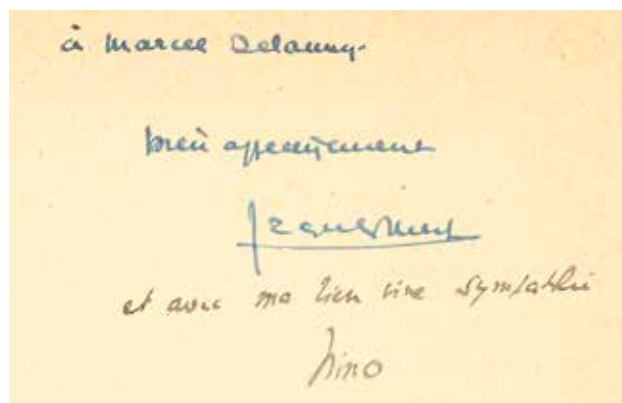 à Marcel Delaunay.
bien affectueusement
et avec ma bien vive sympathie
Nino